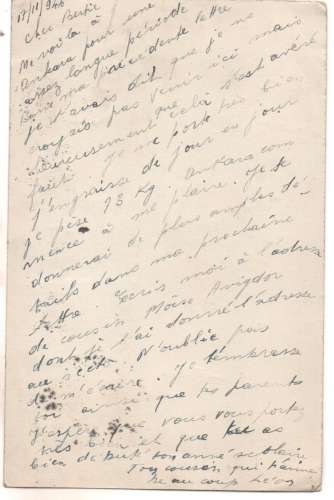 17/11/946
Cher Bertie
Me voilà à
Ankara pour une
assez longue période
ma précédente lettre
je t'avais dit que je ne
croyais pas venir ici mais
heureusement cela s'est avéré
Je me porte très bien
j'engraisse de jour en jour
je pèse 73 Kg. Ankara com
mence à me plaire. Je te
donnerai de plus amples dé-
tails dans ma prochaine
lettre. Ecris moi à l'adresse
de cousin Moïse Avigdor
dont je t'ai donné l'adresse
au N'oublie pas
de m'écrire. Je t'embrasse
toi ainsi que tes parents
J'espère que vous vous portez
très bien et que tu as
bien débuté ton année scolaire
Ton cousin qui t'aime
beaucoup Léon